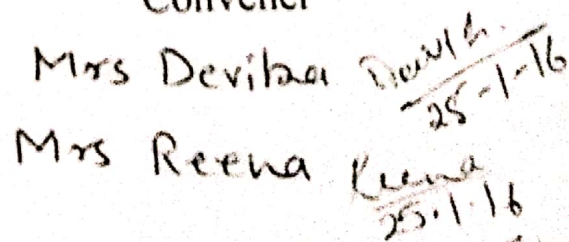 Convener
Mrs Devika
25-1-16
Mrs Reena Reena
25.1.16